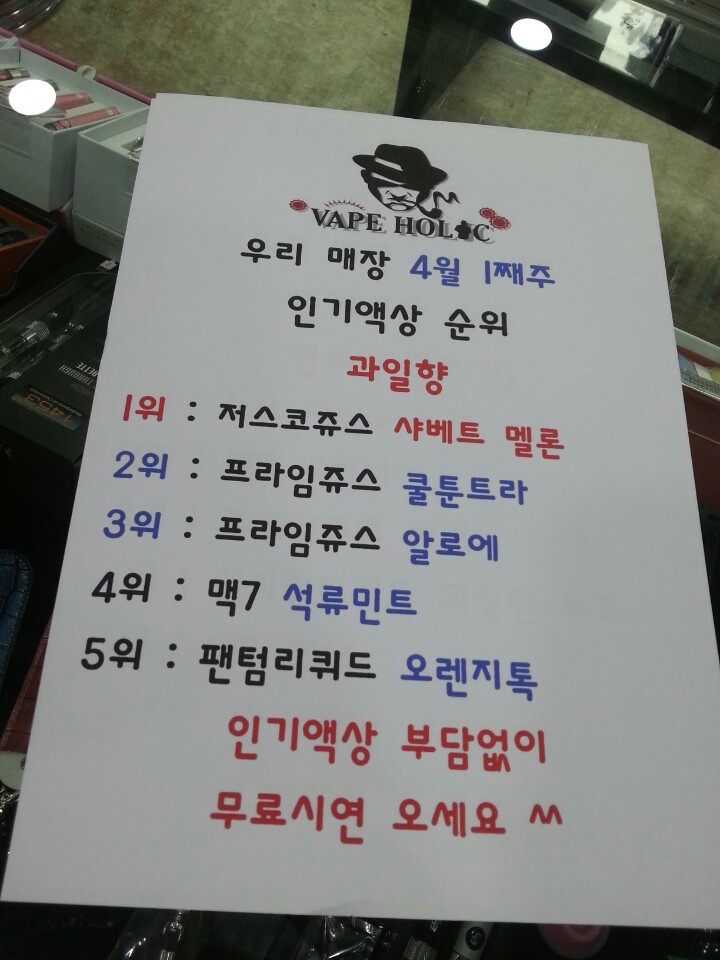 VAPE HOLIC
우리 매장 4월 1째주
인기액상 순위
과일향
1위 : 저스코쥬스 샤베트 멜론
2위 : 프라임쥬스 쿨툰트라
3위 : 프라임쥬스 알로에
4위 : 맥7 석류민트
5위 : 팬텀리퀴드 오렌지톡
인기액상 부담없이
무료시연 오세요 ^^